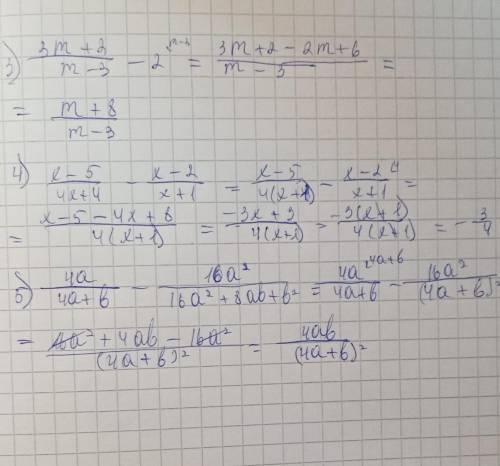 3) (3m+2)/(m-3) - 2^{m-3} = (3m+2-2m+6)/(m-3) =
= (m+8)/(m-3)
4) (x-5)/(4x+4) - (x-2)/(x+1) = (x-5)/(4(x+1)) - (x-2)^4/(x+1) =
= (x-5-4x+8)/(4(x+1)) = (-3x+3)/(4(x+1)) = (-3(x+1))/(4(x+1)) = -3/4
5) 4a/(4a+b) - 16a²/(16a²+8ab+b²) = 4a^{4a+b}/(4a+b) - 16a²/(4a+b)²
= (16a²+4ab-16a²)/(4a+b)² = 4ab/(4a+b)²